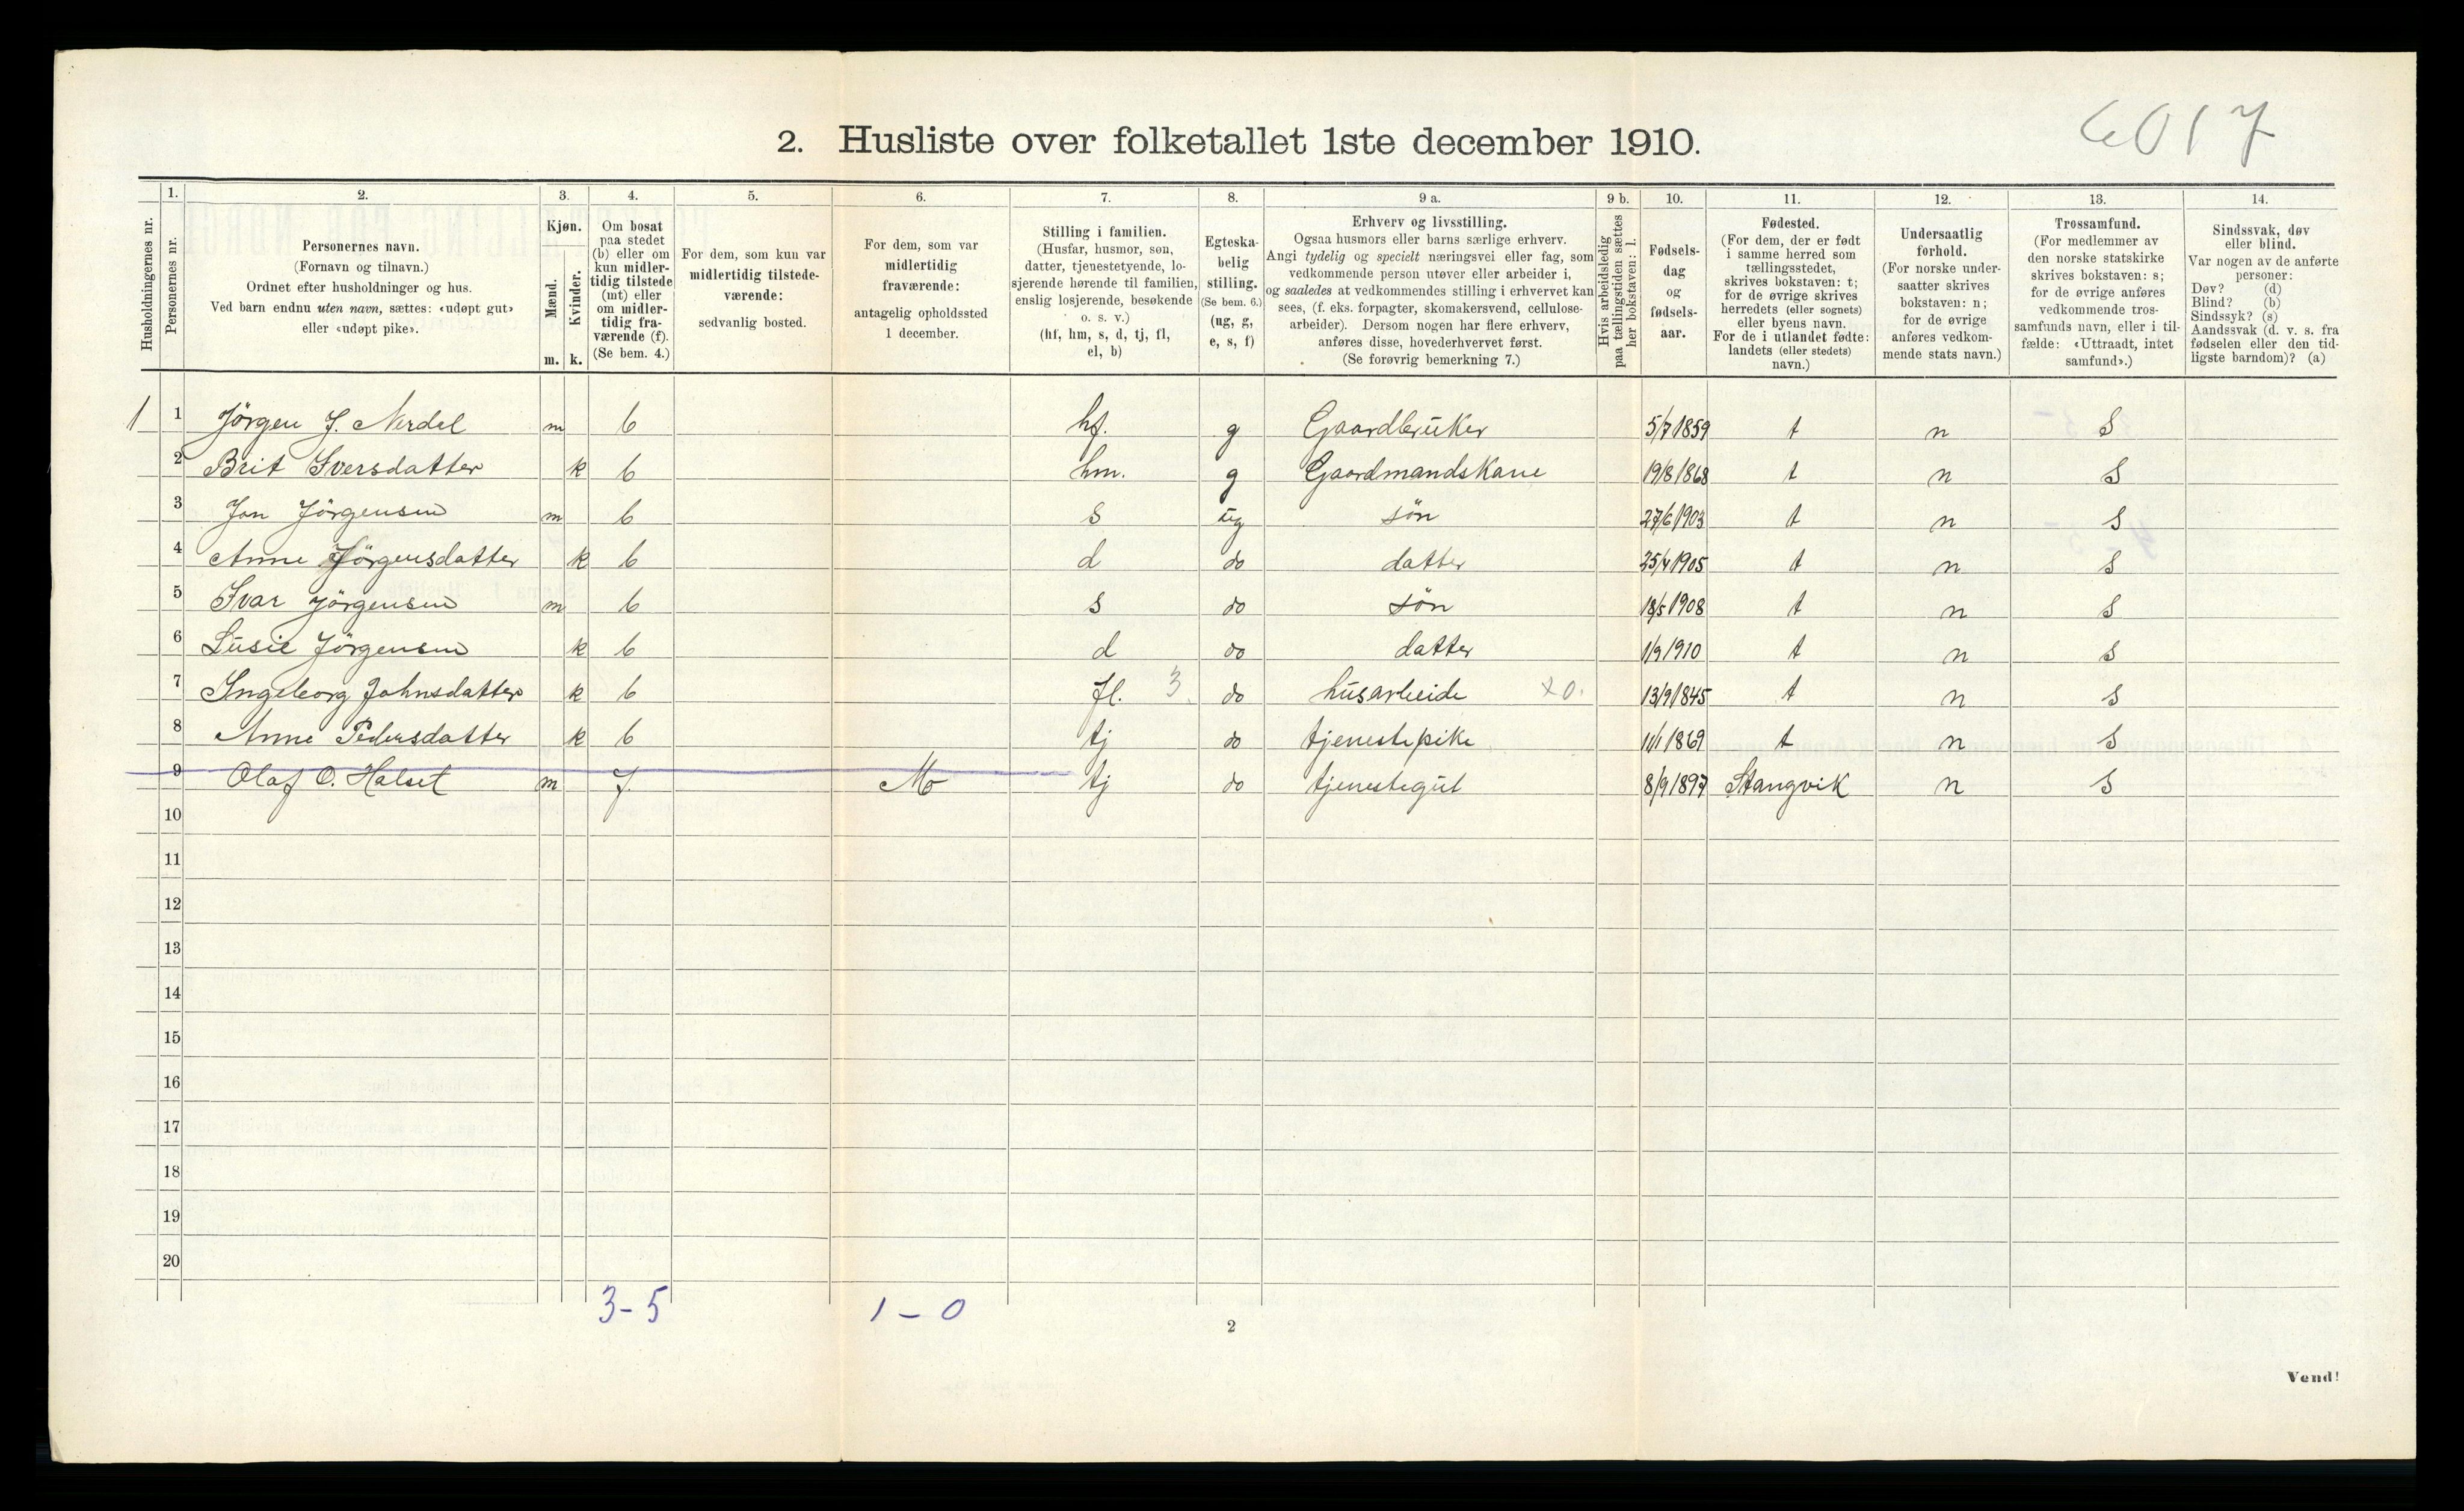 6017
2. Husliste over folketallet 1ste december 1910.
Husholdningernes nr.
1.
Personernes nr.
2.
Personernes navn.
(Fornavn og tilnavn.)
Ordnet efter husholdninger og hus.
Ved barn endnu uten navn, sættes: «udøpt gut»
eller «udøpt pike».
3.
Kjøn.
Mænd.
Kvinder.
m. k.
4.
Om bosat
paa stedet
(b) eller om
kun midler-
tidig tilstede
(mt) eller
om midler-
tidig fra-
værende (f).
(Se bem. 4.)
5.
For dem, som kun var
midlertidig tilstede-
værende:
sedvanlig bosted.
6.
For dem, som var
midlertidig
fraværende:
antagelig opholdssted
1 december.
7.
Stilling i familien.
(Husfar, husmor, søn,
datter, tjenestetyende, lo-
sjerende hørende til familien,
enslig losjerende, besøkende
o. s. v.)
(hf, hm, s, d, tj, fl,
el, b)
8.
Egteska-
belig
stilling.
(Se bem. 6.)
(ug, g,
e, s, f)
9 a.
Erhverv og livsstilling.
Ogsaa husmors eller barns særlige erhverv.
Angi tydelig og specielt næringsvei eller fag, som
vedkommende person utøver eller arbeider i,
og saaledes at vedkommendes stilling i erhvervet kan
sees, (f. eks. forpagter, skomakersvend, cellulose-
arbeider). Dersom nogen har flere erhverv,
anføres disse, hovederhvervet først.
(Se forøvrig bemerkning 7.)
9 b.
Hvis arbeidsledig
paa tællingstiden sættes
her bokstaven: l.
10.
Fødsels-
dag
og
fødsels-
aar.
11.
Fødested.
(For dem, der er født
i samme herred som
tællingsstedet,
skrives bokstaven: t;
for de øvrige skrives
herredets (eller sognets)
eller byens navn.
For de i utlandet fødte:
landets (eller stedets)
navn.)
12.
Undersaatlig
forhold.
(For norske under-
saatter skrives
bokstaven: n;
for de øvrige
anføres vedkom-
mende stats navn.)
13.
Trossamfund.
(For medlemmer av
den norske statskirke
skrives bokstaven: s;
for de øvrige anføres
vedkommende tros-
samfunds navn, eller i til-
fælde: «Uttraadt, intet
samfund».)
14.
Sindssvak, døv
eller blind.
Var nogen av de anførte
personer:
Døv? (d)
Blind? (b)
Sindssyk? (s)
Aandssvak (d. v. s. fra
fødselen eller den tid-
ligste barndom)? (a)
1 1 Jörgen J. Nerdel m b hf. g Gaardbruker 5/7 1859 t n S
2 Brit Iversdatter k b hm. g Gaardmandskane 19/8 1868 t n S
3 Jon Jörgensen m b s ug sön 27/6 1903 t n S
4 Anne Jörgensdatter k b d do datter 25/4 1905 t n S
5 Ivar Jörgensen m b s do sön 18/5 1908 t n S
6 Lusie Jörgensen k b d do datter 1/9 1910 t n S
7 Ingeborg Johnsdatter k b fl. 3 do husarbeide x0. 13/9 1845 t n S
8 Anne Pedersdatter k b tj do tjenestepike 11/1 1869 t n S
9 Olaf O. Halset m f. Mo tj do tjenestegut 8/9 1897 Stangvik n S
10
11
12
13
14
15
16
17
18
19
20
3-5 1-0
2
Vend!